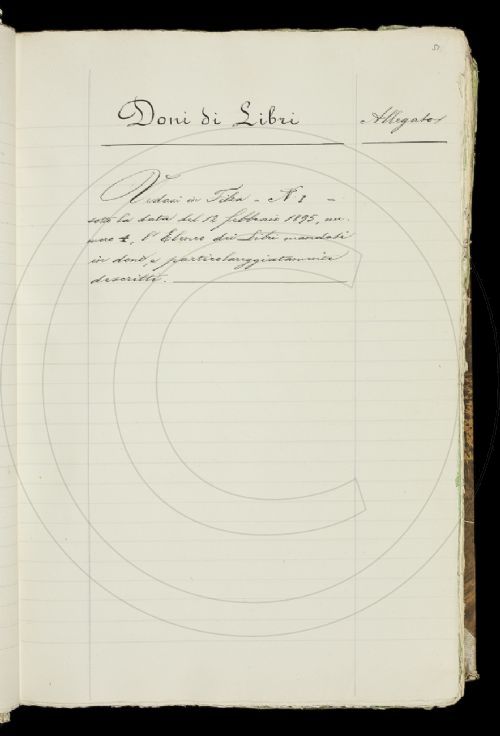 51
Doni di Libri
Allegato
Vedasi in Filza - N 1 -
sotto la data del 12 febbraio 1895, nu-
mero 4, l'Elenco dei Libri mandati
in dono, e particolareggiatamente
descritti.